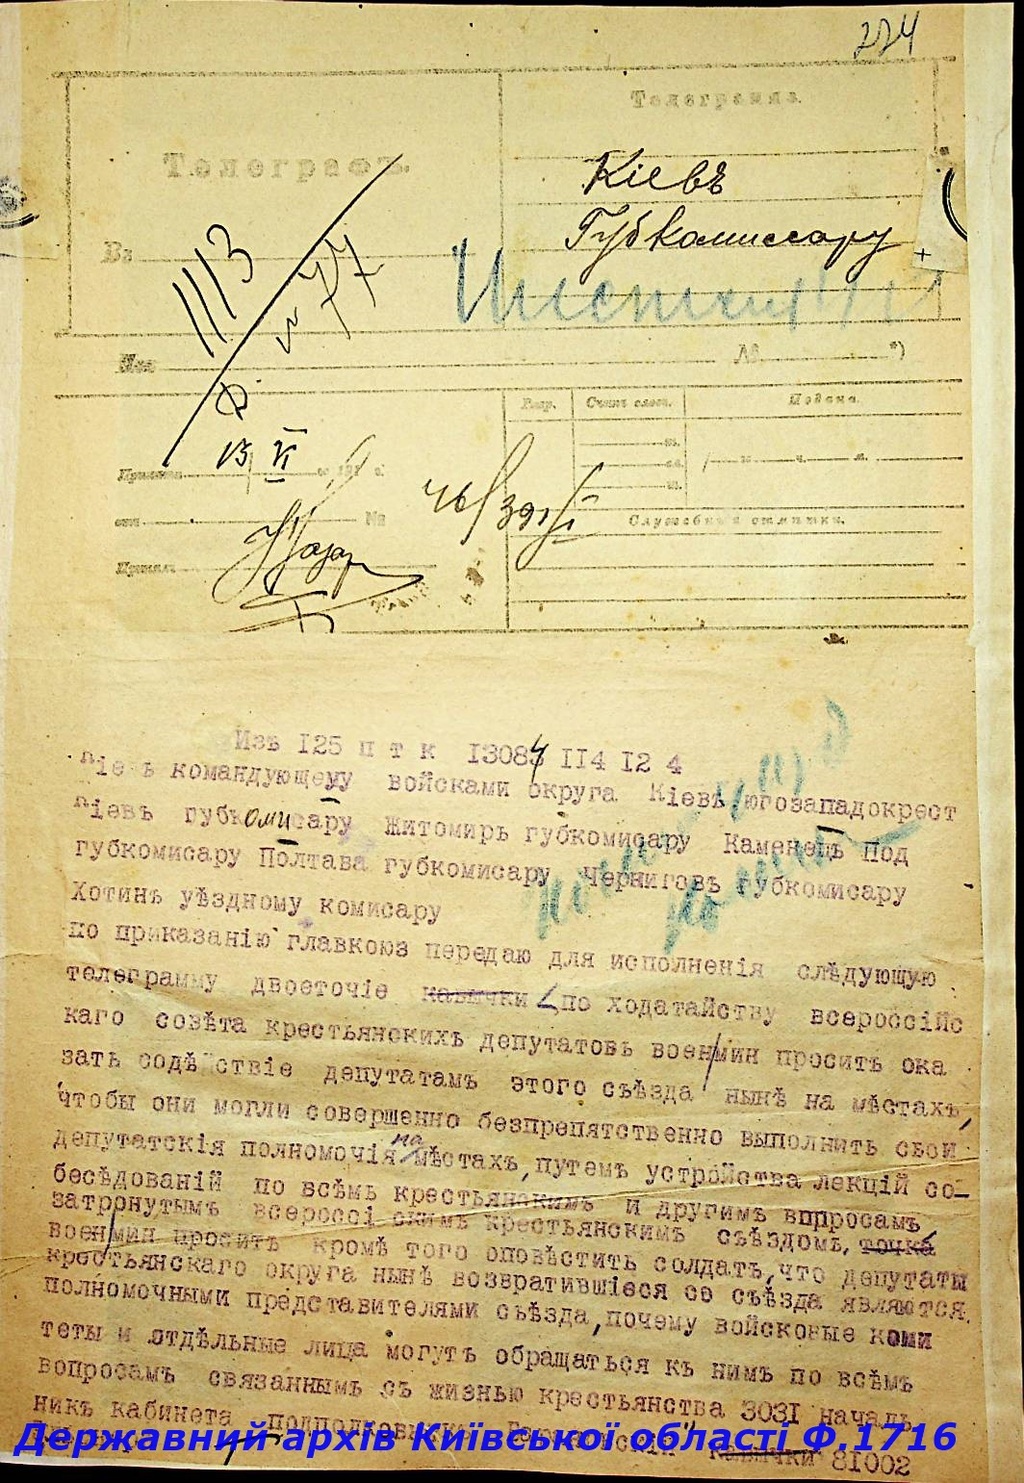 224
Телеграмма.
Телеграфъ.
Кіевъ
Губкомиссару
Въ
1113
№ 77
Изъ
№ *)
Разр.
Счетъ словъ.
Подана.
13 VI
Принята
Служебныя отмѣтки.
№
Принялъ
Изъ 125 п т к 13084 114 12 4
Кіевъ командующему войсками округа Кіевъ югозападокрест
Кіевъ губкомисару Житомирь губкомисару Каменецъ Под
губкомисару Полтава губкомисару Черниговъ губкомисару
Хотинъ уѣздному комисару
по приказанію главкоюз передаю для исполненія слѣдующую
телеграмму двоеточіе кавычки по ходатайству всероссійс
каго совѣта крестьянскихъ депутатовъ военмин проситъ ока
зать содѣйствіе депутатамъ этого съѣзда нынѣ на мѣстахъ,
чтобы они могли совершенно безпрепятственно выполнить свои
депутатскія полномочія на мѣстахъ, путемъ устройства лекцій со-
бесѣдованій по всѣмъ крестьянскимъ и другимъ вппросамъ
затронутымъ всероссі скимъ крестьянскимъ съѣздомъ, точка
военмин проситъ кромѣ того оповѣстить солдатъ, что депутаты
крестьянскаго округа нынѣ возвратившіеся со съѣзда являются
полномочными представителями съѣзда, почему войсковые коми
теты и отдѣльные лица могутъ обращаться къ нимъ по всѣмъ
вопросамъ связаннымъ съ жизнью крестьянства 3031 началь
никъ кабинета подполковникъ кавычки 81002
Державний архів Київської області Ф.1716